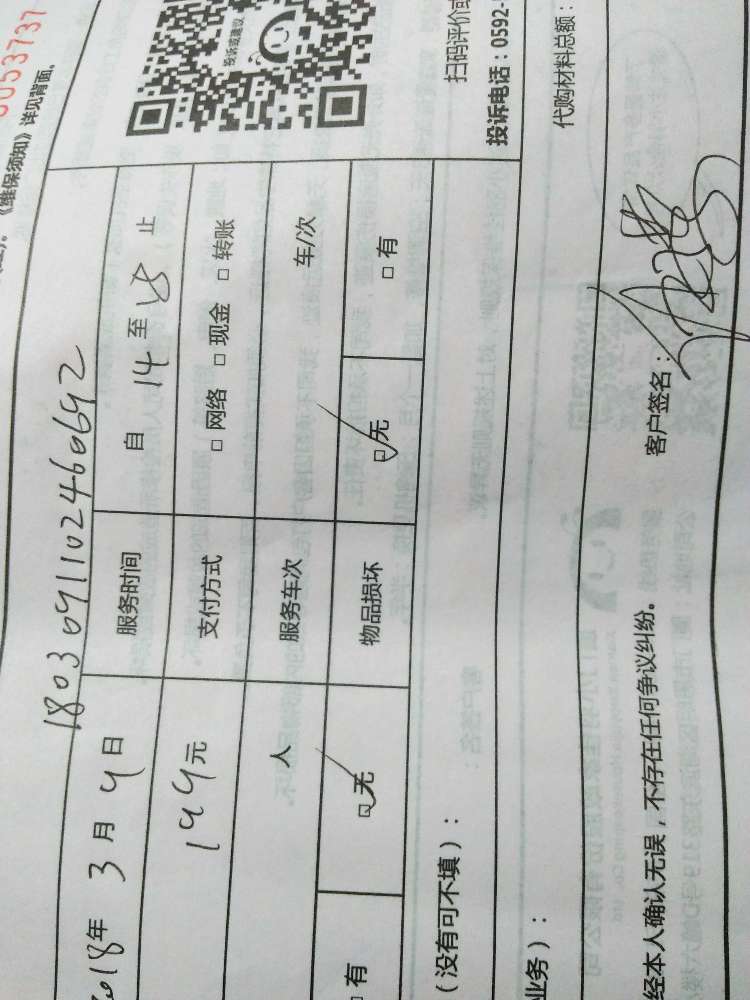 053737
《维保须知》详见背面。
1803091102460692
2018年 3 月 9 日 服务时间 自 14 至 止
199元 支付方式 □ 网络 □ 现金 □ 转账
人 服务车次 车/次
□ 有 □ 无 物品损坏 □ 无 □ 有
投诉或建议
（没有可不填）：
扫码评价或
投诉电话：0592-
业务）：
代购材料总额：
经本人确认无误，不存在任何争议纠纷。 客户签名：